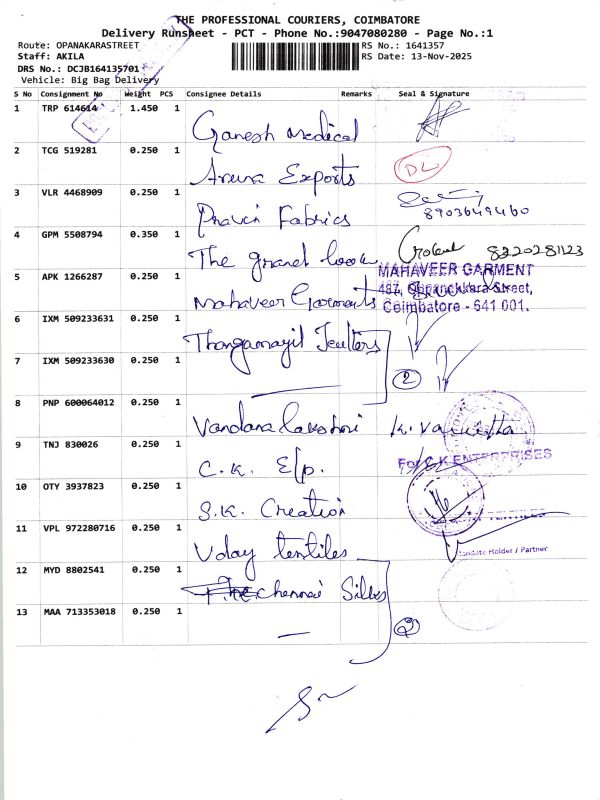 THE PROFESSIONAL COURIERS, COIMBATORE
Delivery Runsheet - PCT - Phone No.:9047080280 - Page No.:1
Route: OPANAKARASTREET
RS No.: 1641357
Staff: AKILA
RS Date: 13-Nov-2025
DRS No.: DCJB164135701
Vehicle: Big Bag Delivery
S No Consignment No Weight PCS Consignee Details Remarks Seal & Signature
1 TRP 614614 1.450 1 Ganesh Medical
2 TCG 519281 0.250 1 Aruna Exports DL
3 VLR 4468909 0.250 1 Pravin Fabrics
8903649460
4 GPM 5508794 0.350 1 The grand look 8220281123
5 APK 1266287 0.250 1 Mahaveer Garments
MAHAVEER GARMENT
487, Oppanakkara Street,
Coimbatore - 641 001.
6 IXM 509233631 0.250 1 Thangamayil Jeullers
7 IXM 509233630 0.250 1 — 2
8 PNP 600064012 0.250 1 Vandana lakshmi
9 TNJ 830026 0.250 1 C.K. E/p.
For C.K ENTERPRISES
10 OTY 3937823 0.250 1 S.K. Creation
11 VPL 972280716 0.250 1 Uday textiles
TEXTILES
Holder / Partner
12 MYD 8802541 0.250 1 The chennai Silks
13 MAA 713353018 0.250 1 — 2